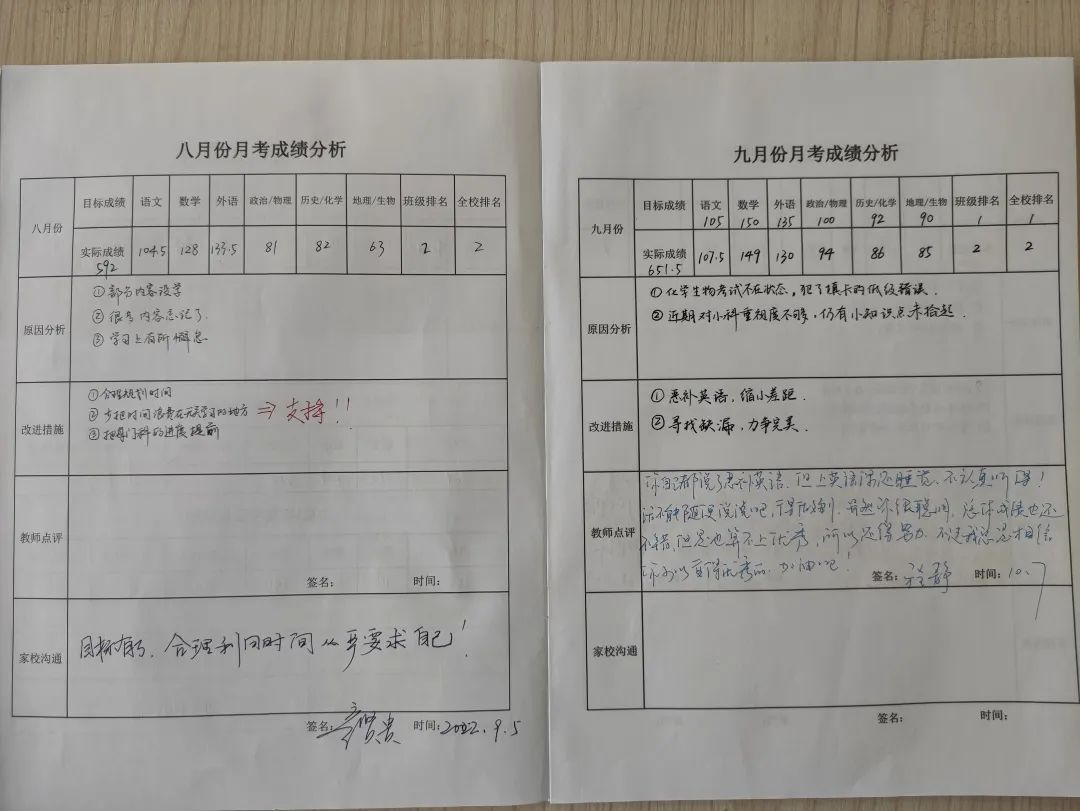 八月份月考成绩分析
八月份 目标成绩 语文 数学 外语 政治/物理 历史/化学 地理/生物 班级排名 全校排名
实际成绩 104.5 128 133.5 81 82 63 2 2
592
原因分析
①部分内容没学
②很多内容忘记了.
③学习上有所懈怠
改进措施
①合理规划时间
②少把时间浪费在无关学习的地方 ⇒ 支持!!
③把每门科的进度提前
教师点评
签名: 时间:
家校沟通
目标有了、合理利用时间从严要求自己!
签名: 时间:2022.9.5
九月份月考成绩分析
九月份 目标成绩 语文 数学 外语 政治/物理 历史/化学 地理/生物 班级排名 全校排名
105 150 135 100 92 90 1 1
实际成绩 107.5 149 130 94 86 85 2 2
651.5
原因分析
①化学生物考试不在状态,犯了填卡的低级错误.
②近期对小科重视度不够,仍有小知识点未拾起.
改进措施
①恶补英语,缩小差距.
②寻找缺漏,力争完美.
教师点评
你自己都说了恶补英语、但上英语课还睡觉、不认真听课!
话不能随便说说吧,于是做到.虽然你很聪明,总体成绩也还
不错,但是也算不上优秀,所以还得努力.不过我总是相信
你可以变得优秀的.加油吧!
签名: 时间:10.7
家校沟通
签名: 时间: